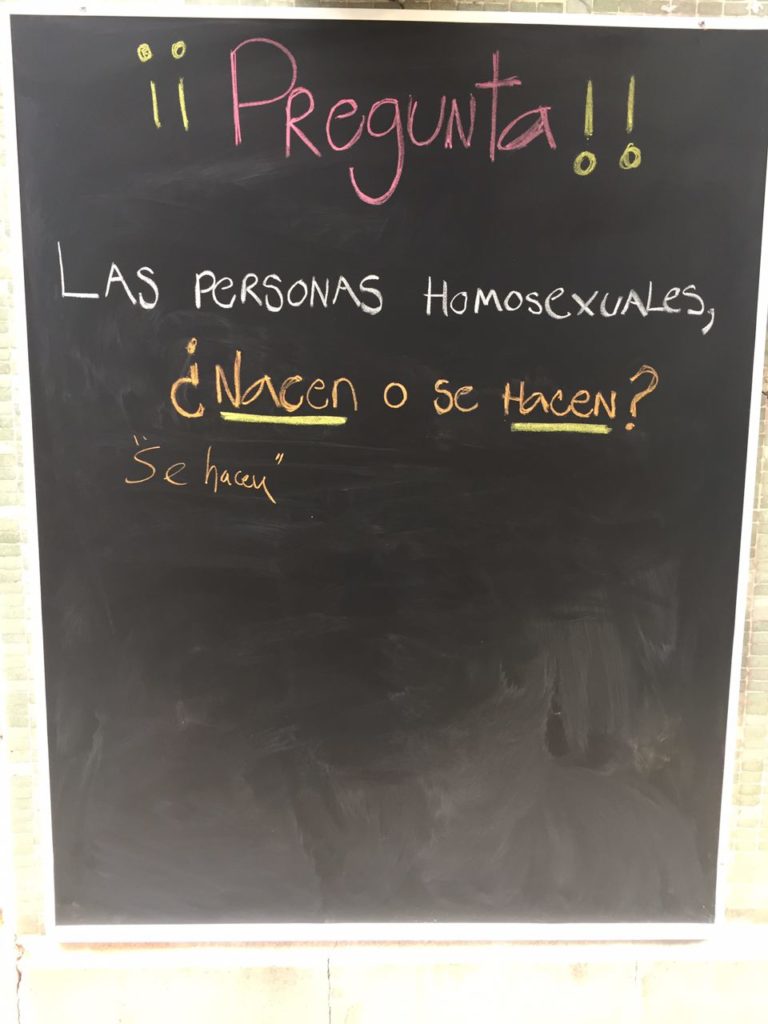 ¡¡Pregunta!!
Las personas homosexuales,
¿Nacen o se hacen?
"Se hacen"